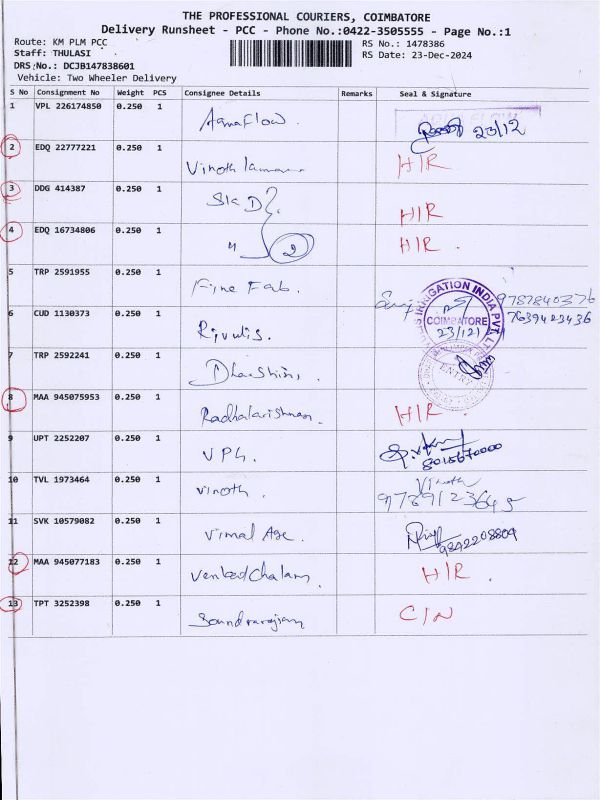 THE PROFESSIONAL COURIERS, COIMBATORE
Delivery Runsheet - PCC - Phone No.:0422-3505555 - Page No.:1
Route: KM PLM PCC RS No.: 1478386
Staff: THULASI RS Date: 23-Dec-2024
DRS No.: DCJB147838601
Vehicle: Two Wheeler Delivery
S No Consignment No Weight PCS Consignee Details Remarks Seal & Signature
1 VPL 226174850 0.250 1 AquaFlow. 23/12
2 EDQ 22777221 0.250 1 Vinoth HIR
3 DDG 414387 0.250 1 HIR
4 EDQ 16734806 0.250 1 " 2 HIR.
5 TRP 2591955 0.250 1 Fine Fab. IRRIGATION INDIA PVT. COIMBATORE 9787840376
6 CUD 1130373 0.250 1 Rivulis. 23/12 7639423436
7 TRP 2592241 0.250 1 Dharshini. ENTRY
8 MAA 945075953 0.250 1 Radhakrishnan. HIR
9 UPT 2252207 0.250 1 VPG. 8015670000
10 TVL 1973464 0.250 1 Vinoth. Vinoth
11 SVK 10579082 0.250 1 Vimal Age. 9842208809
12 MAA 945077183 0.250 1 Venkadchalam. HIR.
13 TPT 3252398 0.250 1 Soundrarajan C/N